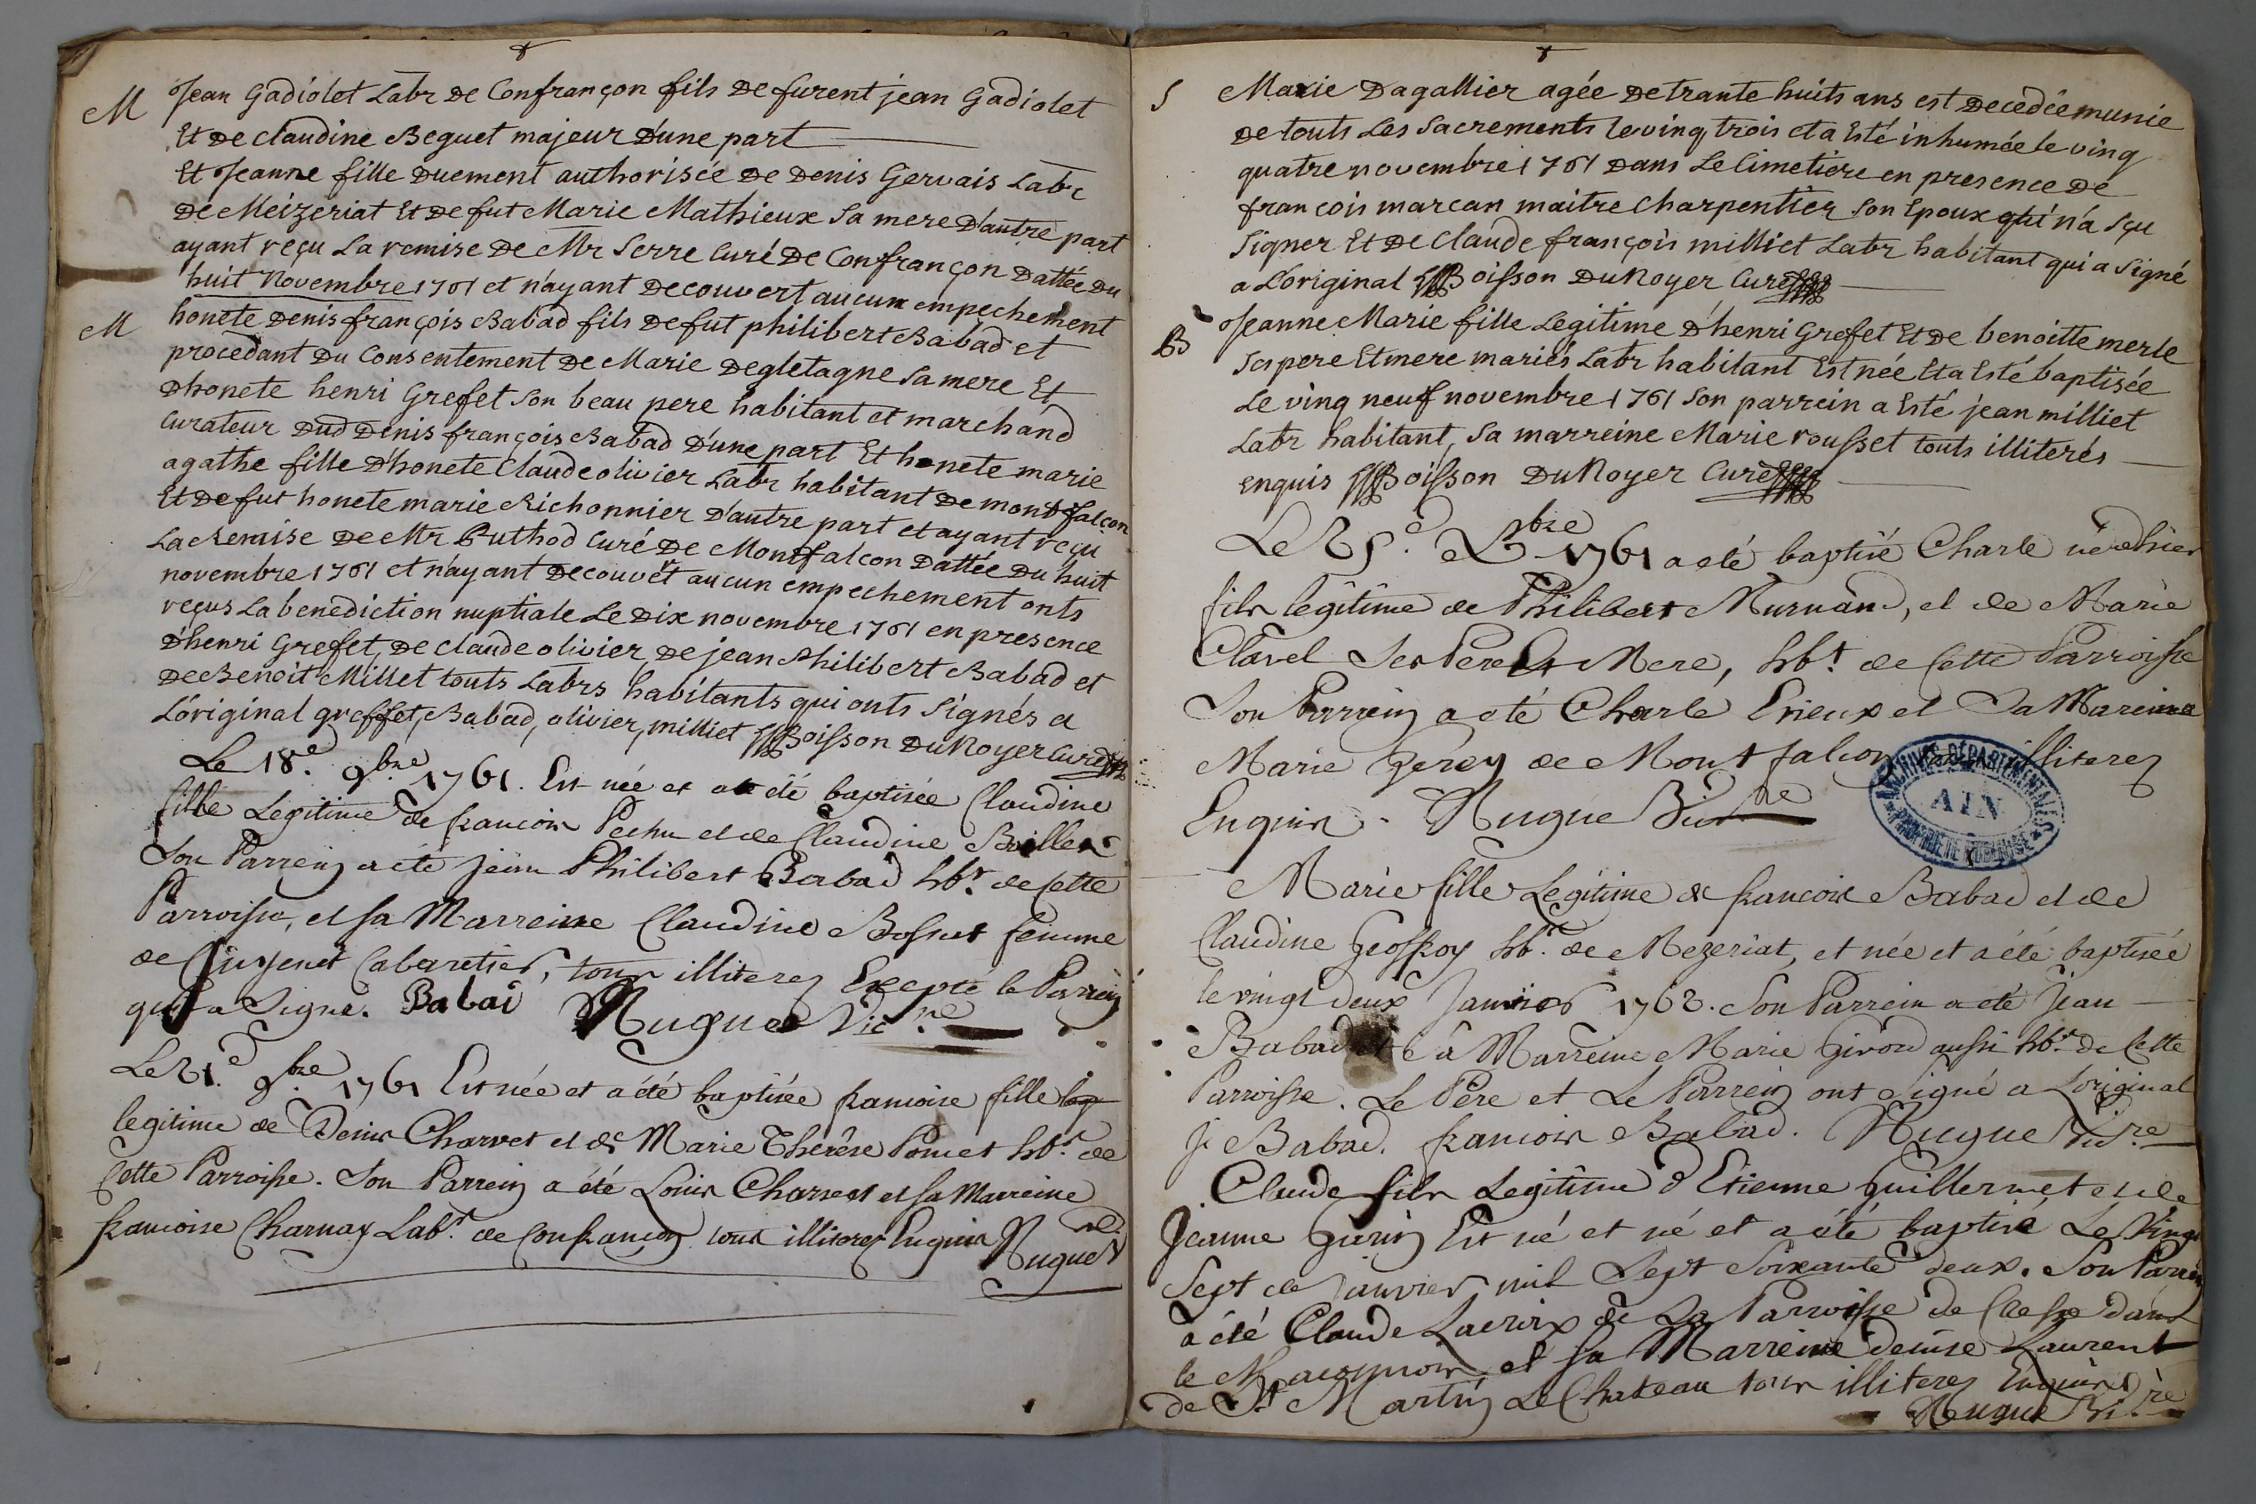 M Jean Gadiolet Labr De Confrançon fils De furent jean Gadiolet
Et De Claudine Beguet majeur D'une part
Et Jeanne fille Duement authorisée De Denis Gervais Labr
De Meizeriat Et De fut Marie Mathieux Sa mere D'autre part
ayant reçu La remise De Mr Serre Curé De Confrançon Dattée Du
huit Novembre 1761 et n'ayant Decouvert aucun empechement
M honete Denis françois Babad fils De fut philibert Babad et
procedant Du Consentement De Marie Degletagne Sa mere Et
D'honete henri Grefet Son beau pere habitant et marchand
Curateur Dud Denis françois Babad D'une part Et honete marie
agathe fille D'honete Claude olivier Labr habitant De montfalcon
Et De fut honete marie Richonnier D'autre part et ayant reçu
La Remise De Mr Puthod Curé De Montfalcon Dattée Du huit
novembre 1761 et n'ayant Decouvert aucun empechement onts
reçus La benediction nuptiale Le Dix novembre 1761 en presence
D'henri Grefet, De Claude olivier, De jean Philibert Babad et
De Benoit Millet touts Labrs habitants qui onts Signés a
L'original greffet, Babad, olivier, milliet Boisson Du Noyer Curé
Le 18e. 9bre 1761. Est née et a été baptisée Claudine
fille Legitime de francois Pechu et de Claudine Boillet
Son Parrein a été jean Philibert Babad hbt. de Cette
Parroisse, et sa Marreine Claudine Bossut femme
de Cabaretier, tous illiterez Excepté le Parrein
qui a Signé. Babad Nugue Vicre
Le 21.e 9bre 1761 Est née et a été baptisée francoise fille leg
legitime de Denis Charvet et de Marie Therêse Pomet hbt. de
Cette Parroisse. Son Parrein a été Louis Charvet et sa Marreine
francoise Charnay Labr. de Confrancon tous illiterez Enquis Nugue V re
S Marie Dagallier agée De trante huits ans est Decedée munie
De touts Les Sacrements le vinq trois et a Esté inhumée le vinq
quatre novembre 1761 Dans Le Cimetiere en presence De
françois marcan maitre Charpentier Son Epoux qui n'a Sçu
Signer Et De Claude françois milliet Labr habitant qui a Signé
a L'original Boisson Du Noyer Curé
B Jeanne Marie fille Legitime D'henri Grefet Et De benoitte merle
Ses pere Et mere mariés Labr habitant Est née Et a Esté baptisée
Le vinq neuf novembre 1761 Son parrein a Esté jean milliet
Labr habitant, Sa marreine Marie rousset touts illiterés
enquis Boisson Du Noyer Curé
Le 25.e Xbre 1761 a été baptisé Charle né d'hier
fils legitime de Philibert Murnand, et de Marie
Clavel Ses Pere Et Mere, hbt. de Cette Parroisse
Son Parrein a été Charle Erieux et Sa Mareine
Marie Gerey de Montfalcon illiterez
Enquis. Nugue Vicre
Marie fille Legitime de francois Babad et de
Claudine Geoffroy hbt. de Mezeriat, et née et a été baptisée
le vingt deux Janvier 1762. Son Parrein a été Jean
Babad et Sa Marreine Marie Girord aussi hbt. de Cette
Parroisse. Le Pere et Le Parrein ont Signé a L'original
J Babad. francois Babad. Nugue Vicre
Claude fils Legitime d'Etienne Guillermet et de
Jeanne Guerin Est né et né et a été baptisé Le Vingt
Sept de Janvier mil Sept Soixante deux. Son Parrein
a été Claude Lacroix de La Parroisse de Clesse dans
le Maconnois et sa Marreine denise Laurent
de St Martin Le Chateau tous illiterez Enquis
Nugue Vicre
ARCHIVES DÉPARTEMENTALES
AIN
PROPRIÉTÉ PUBLIQUE